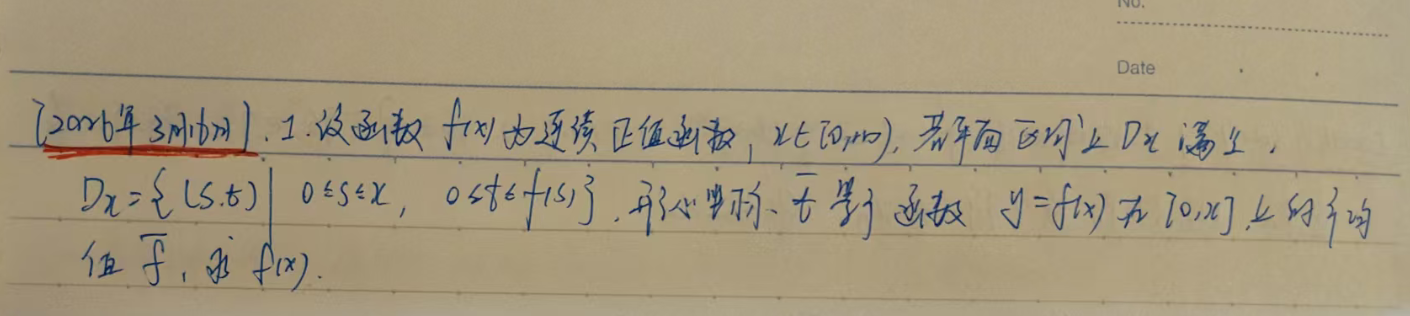 No.
Date
[2026年3月16日]. 1. 设函数 f(x) 为连续正值函数, x∈[0,+∞), 若平面区间上 Dx 满足,
Dx={(s,t)| 0≤s≤x, 0≤t≤f(s)}, 形心坐标 t̄ 等于函数 y=f(x) 在 [0,x] 上的平均
值 f̄, 求 f(x).